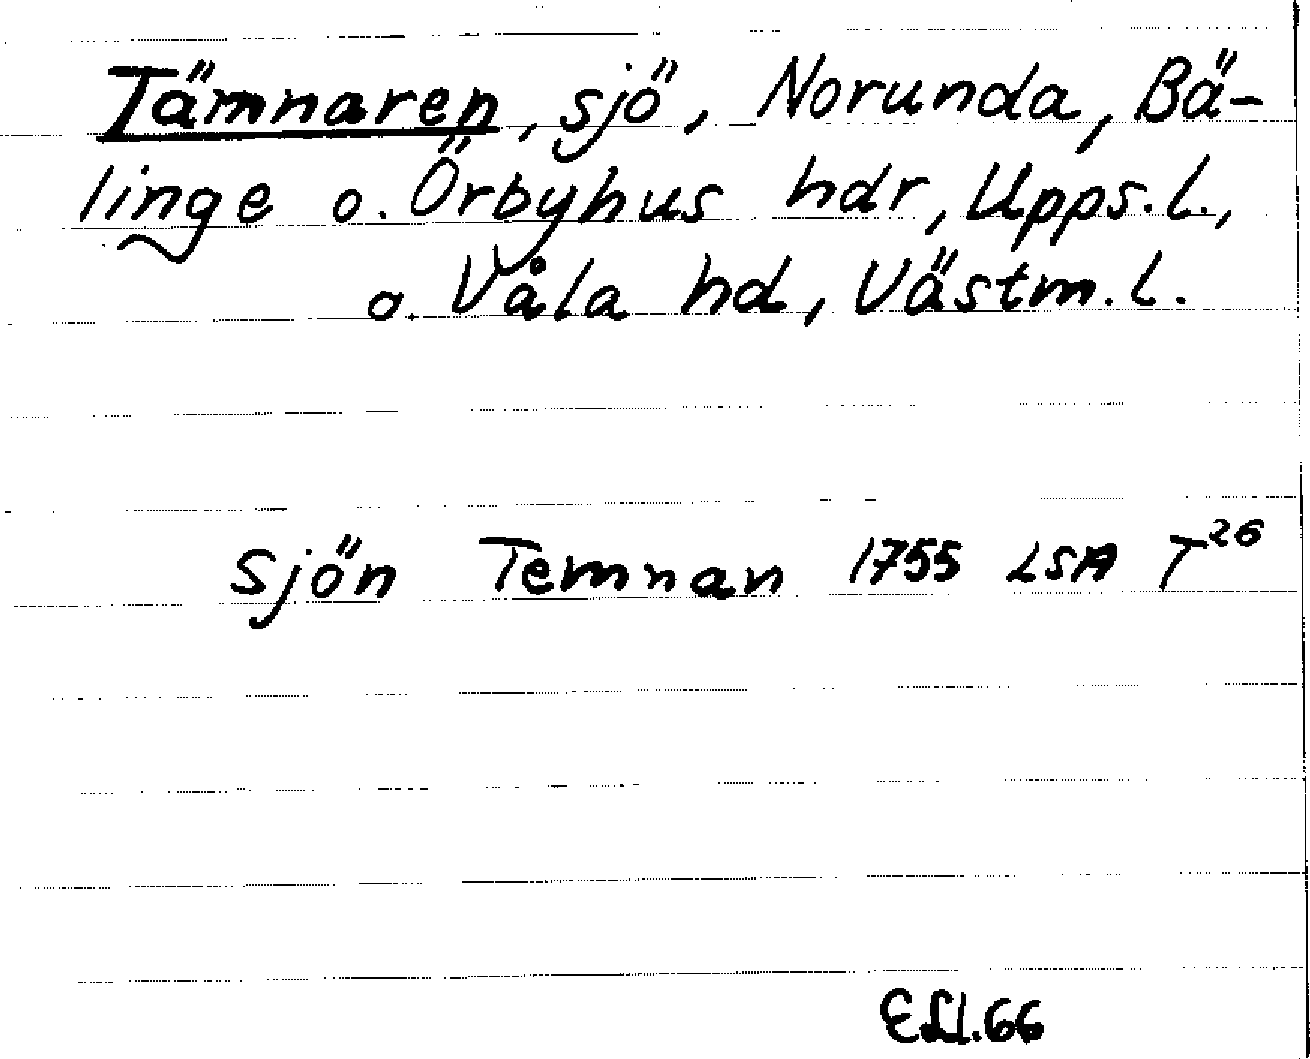 Tämnaren, sjö, Norunda, Bä-
linge o. Örbyhus hdr, Upps.l.,
o. Våla hd, Västm.l.
Sjön Temnan 1755 LSA T²⁶